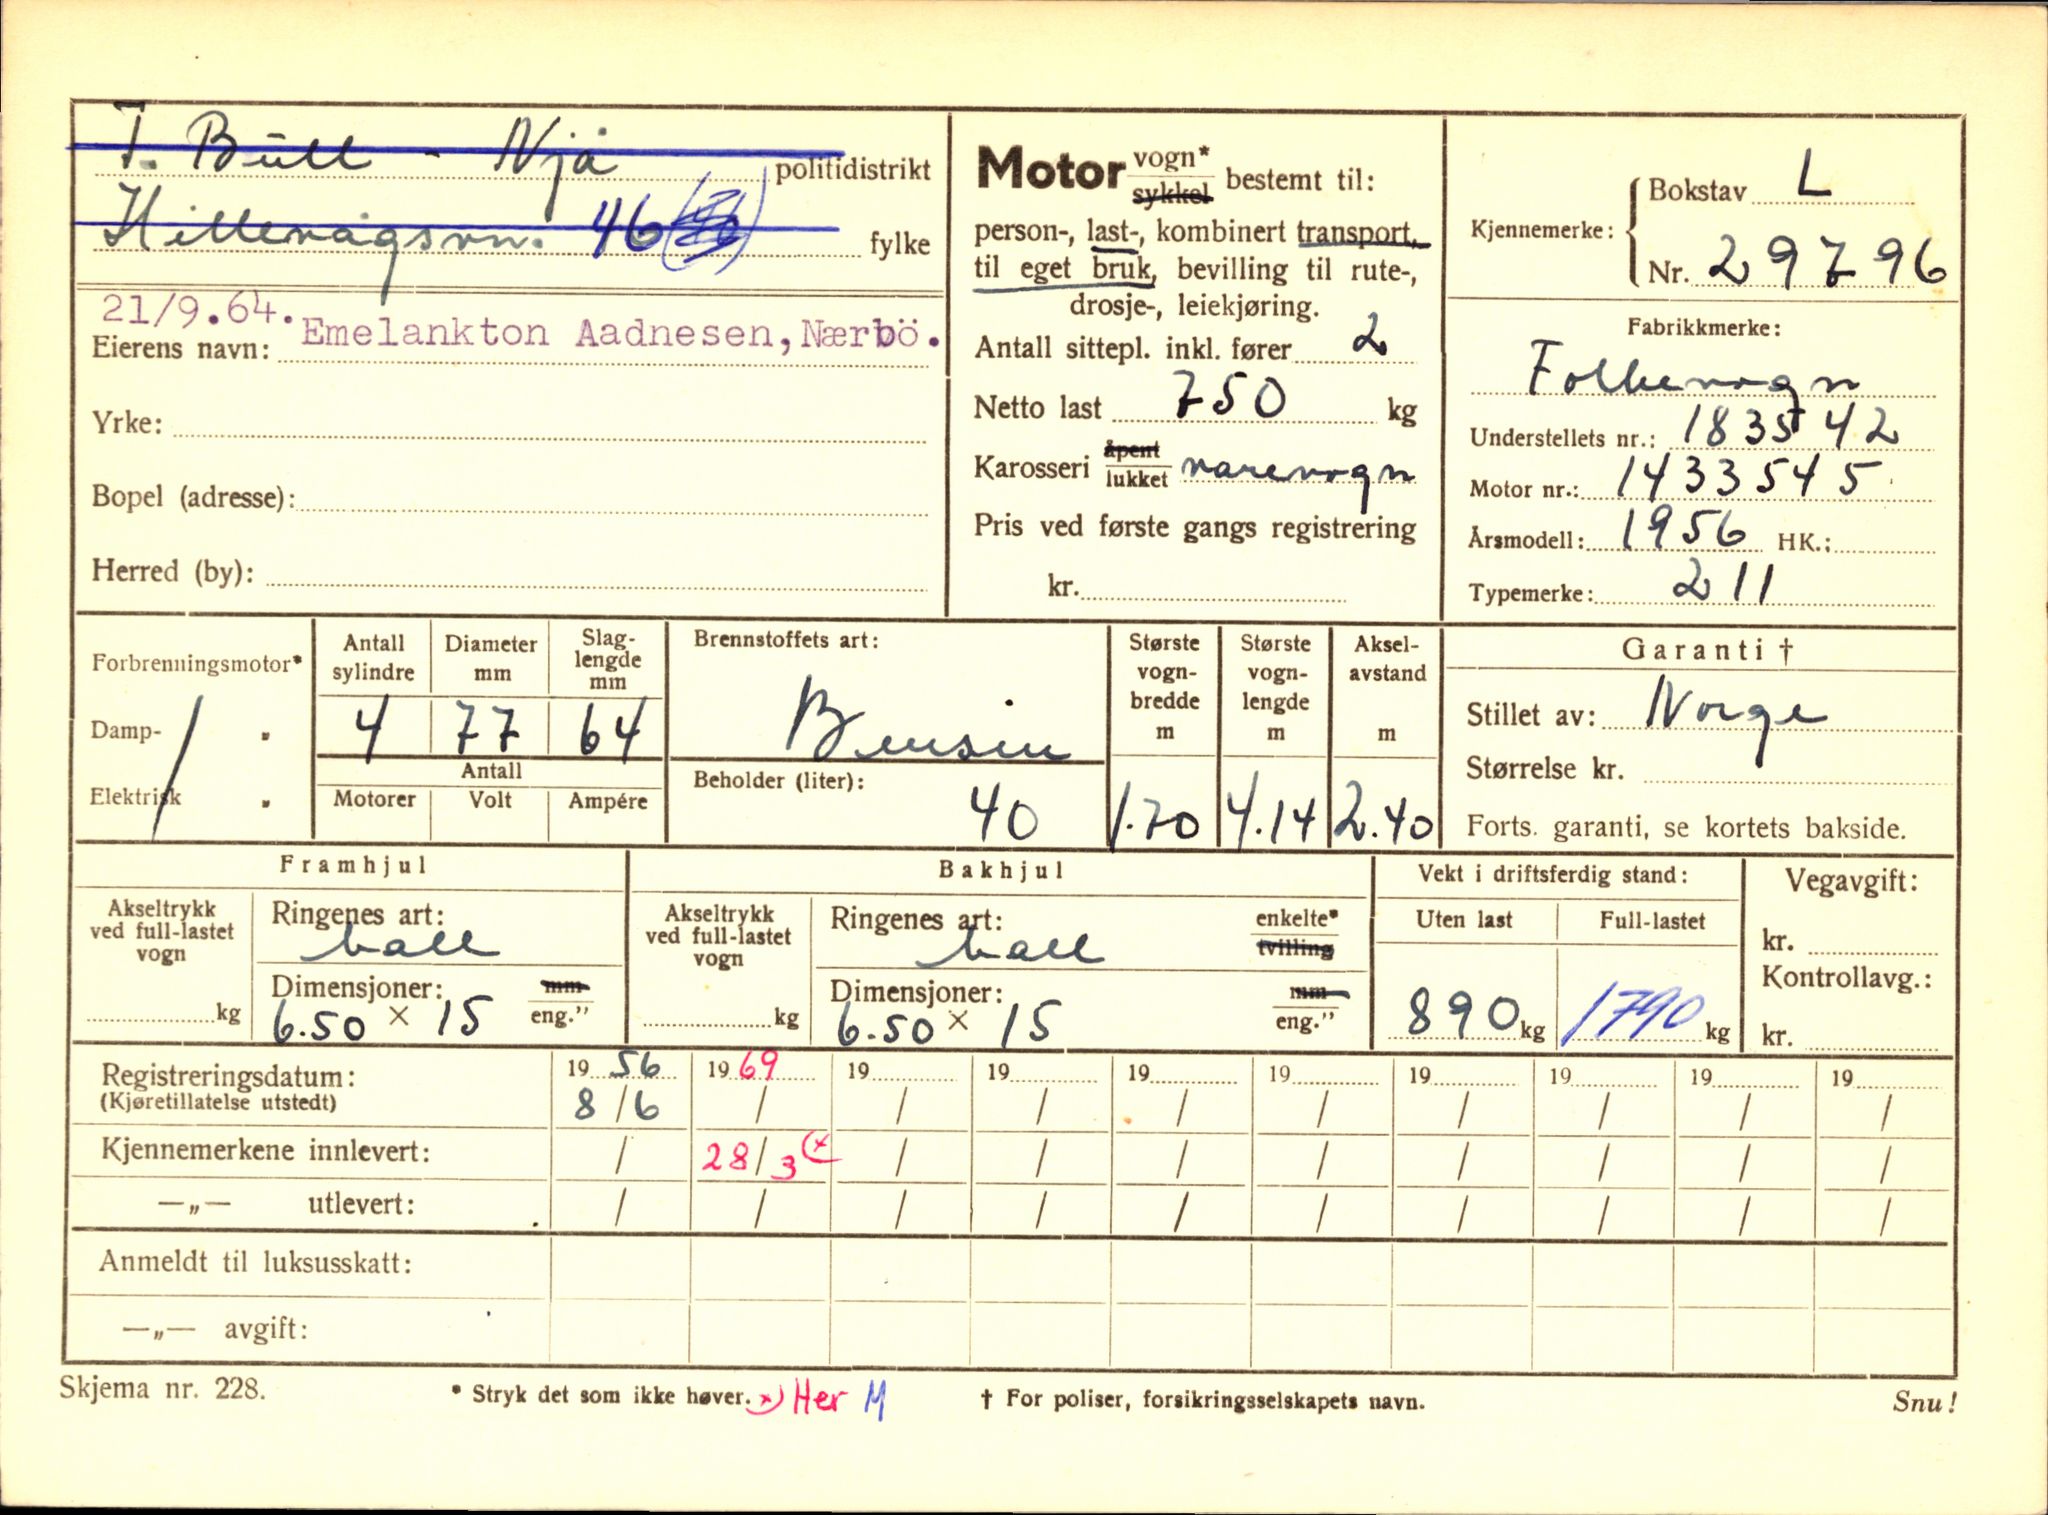 T. Bull - Njå politidistrikt
Hillevågsvn. 46 fylke
21/9.64. Emelankton Aadnesen, Nærbö.
Eierens navn:
Yrke:
Bopel (adresse):
Herred (by):
Motor vogn* sykkel bestemt til:
person-, last-, kombinert transport,
til eget bruk, bevilling til rute-,
drosje-, leiekjøring.
Antall sittepl. inkl. fører 2
Netto last 750 kg
Karosseri åpent lukket varevogn
Pris ved første gangs registrering
kr.
Kjennemerke: Bokstav L
Nr. 29796
Fabrikkmerke:
Folkevogn
Understellets nr.: 183542
Motor nr.: 1433545
Årsmodell: 1956 HK.:
Typemerke: 211
Forbrenningsmotor*
Damp- "
Elektrisk "
Antall sylindre Diameter mm Slag-lengde mm
4 77 64
Antall
Motorer Volt Ampére
Brennstoffets art:
Bensin
Beholder (liter):
40
Største vogn-bredde m
1.70
Største vogn-lengde m
4.14
Aksel-avstand m
2.40
Garanti †
Stillet av: Norge
Størrelse kr.
Forts. garanti, se kortets bakside.
Framhjul
Akseltrykk ved full-lastet vogn
kg
Ringenes art:
ball
Dimensjoner: mm
6.50 × 15 eng."
Bakhjul
Akseltrykk ved full-lastet vogn
kg
Ringenes art: enkelte*
ball tvilling
Dimensjoner: mm
6.50 × 15 eng."
Vekt i driftsferdig stand:
Uten last Full-lastet
890 kg 1790 kg
Vegavgift:
kr.
Kontrollavg.:
kr.
Registreringsdatum: 19 56 19 69 19 19 19 19 19 19 19 19
(Kjøretillatelse utstedt) 8/6 / / / / / / / / /
Kjennemerkene innlevert: / 28/3 x) / / / / / / / /
—„— utlevert: / / / / / / / / / /
Anmeldt til luksusskatt:
—„— avgift:
Skjema nr. 228. * Stryk det som ikke høver. x) Her M † For poliser, forsikringsselskapets navn. Snu!